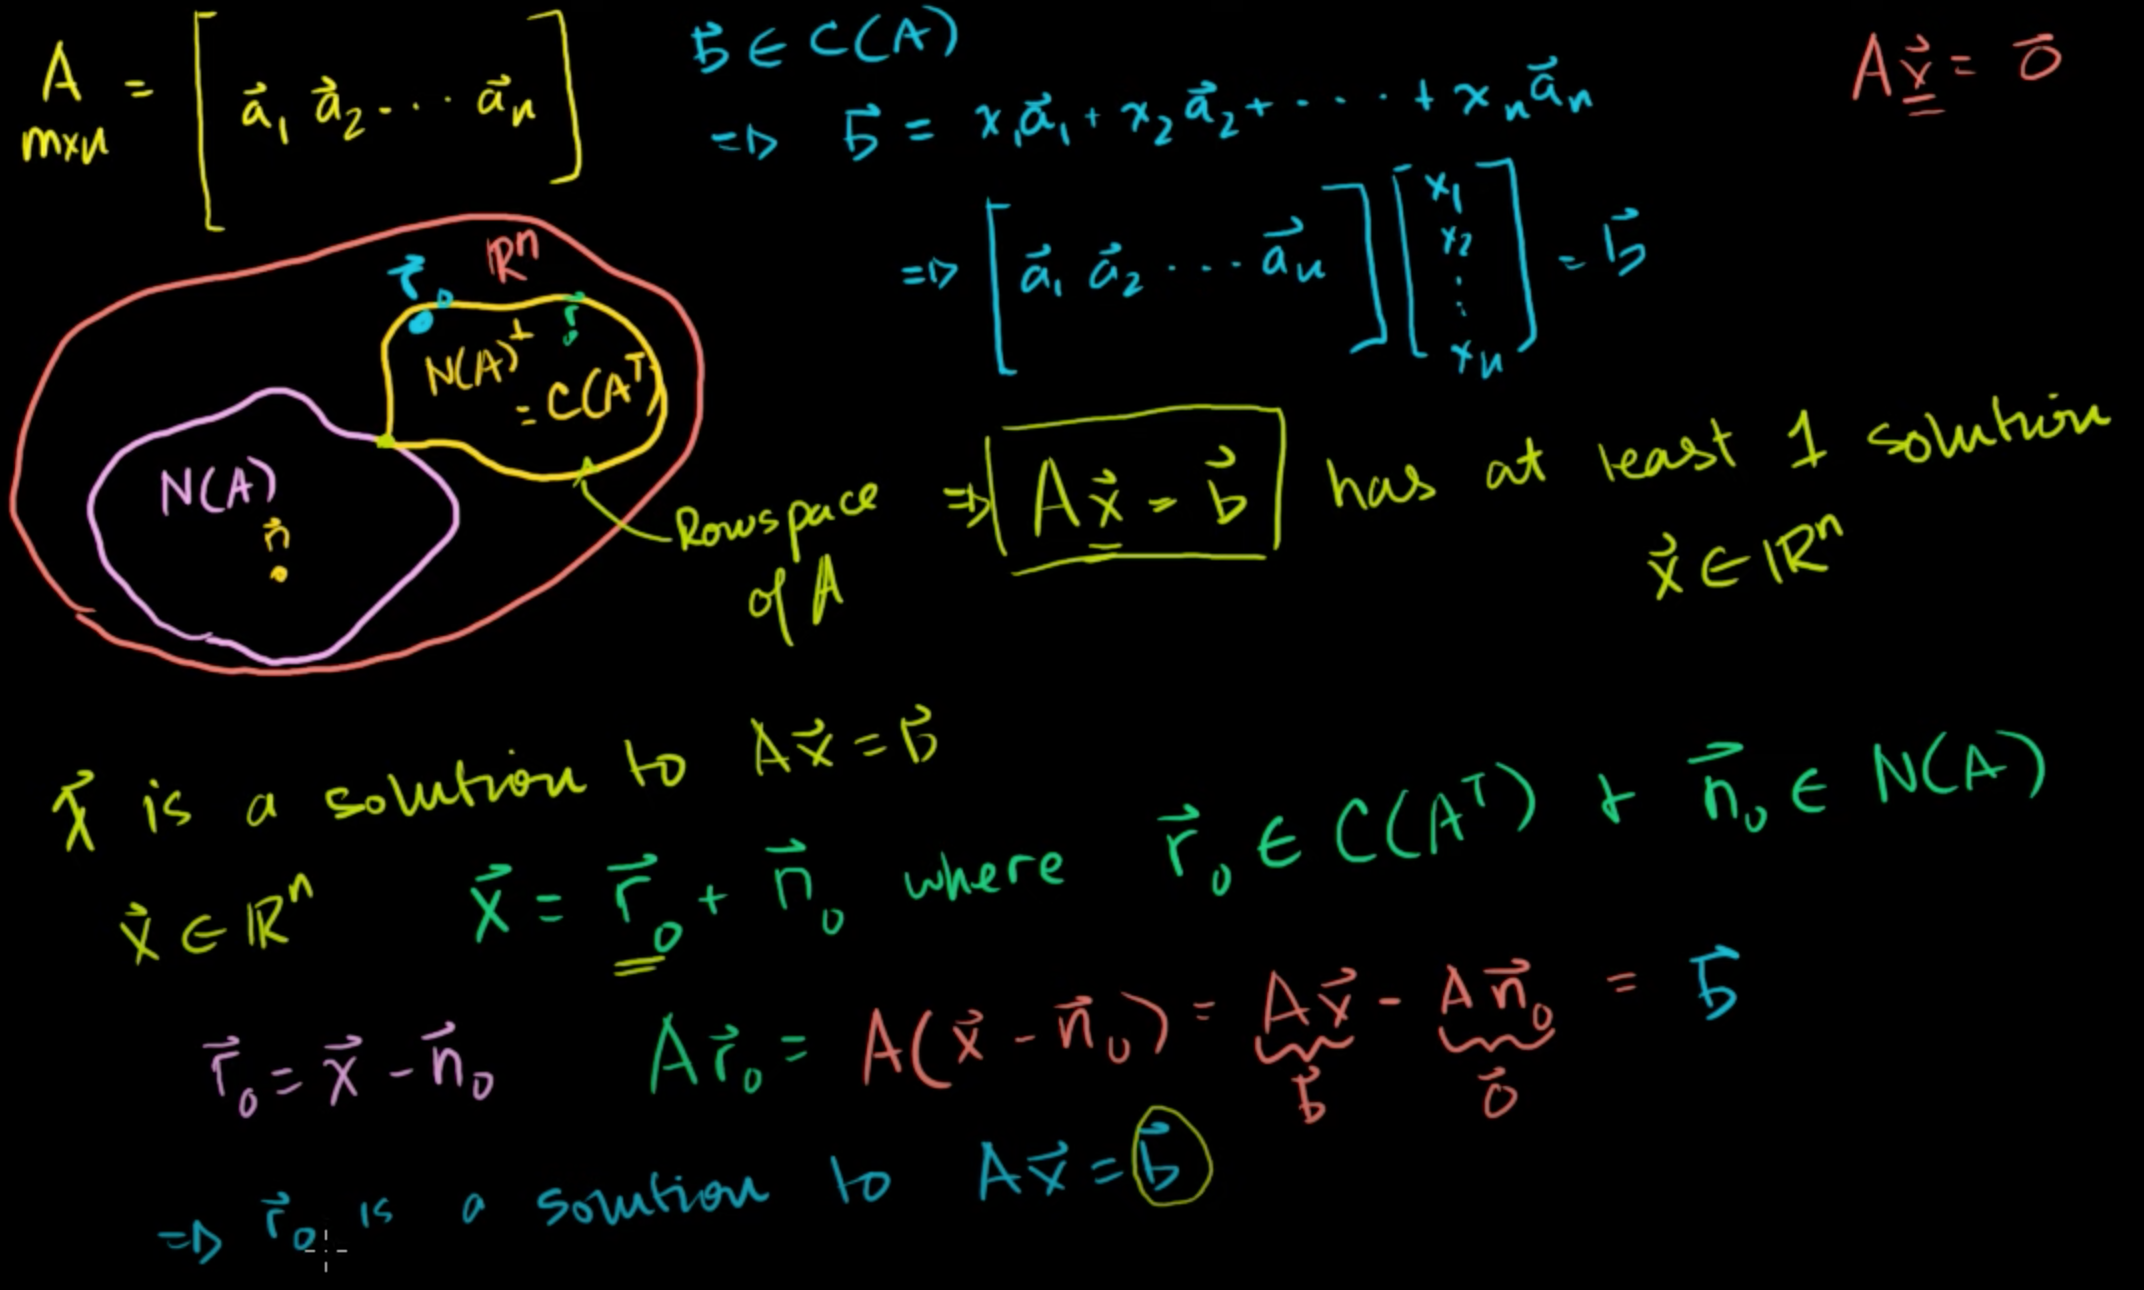 A = [a⃗₁ a⃗₂ ... a⃗n]
mxn
b⃗ ∈ C(A)
⇒ b⃗ = x₁a⃗₁ + x₂a⃗₂ + ···· + xna⃗n
Ax⃗ = 0⃗
⇒ [a⃗₁ a⃗₂ ... a⃗n] [x₁ x₂ ⋮ xn] = b⃗
r⃗₀
ℝⁿ
r⃗
N(A)⊥
= C(Aᵀ)
N(A)
n⃗
Rowspace
of A
⇒ Ax⃗ = b⃗ has at least 1 solution
x⃗ ∈ ℝⁿ
x⃗ is a solution to Ax⃗ = b⃗
x⃗ ∈ ℝⁿ x⃗ = r⃗₀ + n⃗₀ where r⃗₀ ∈ C(Aᵀ) + n⃗₀ ∈ N(A)
r⃗₀ = x⃗ - n⃗₀ Ar⃗₀ = A(x⃗ - n⃗₀) = Ax⃗ - An⃗₀ = b⃗
b⃗ 0⃗
⇒ r⃗₀ is a solution to Ax⃗ = b⃗